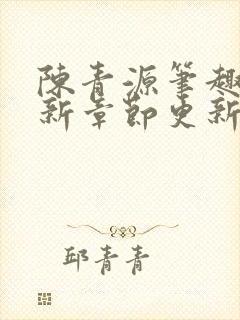 陳青源筆趣
新章節更新
邱青青